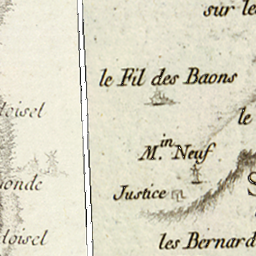 sur le
le Fil des Baons
loisel
le
M.in Neuf
onde
Justice
S
loisel
les Bernard